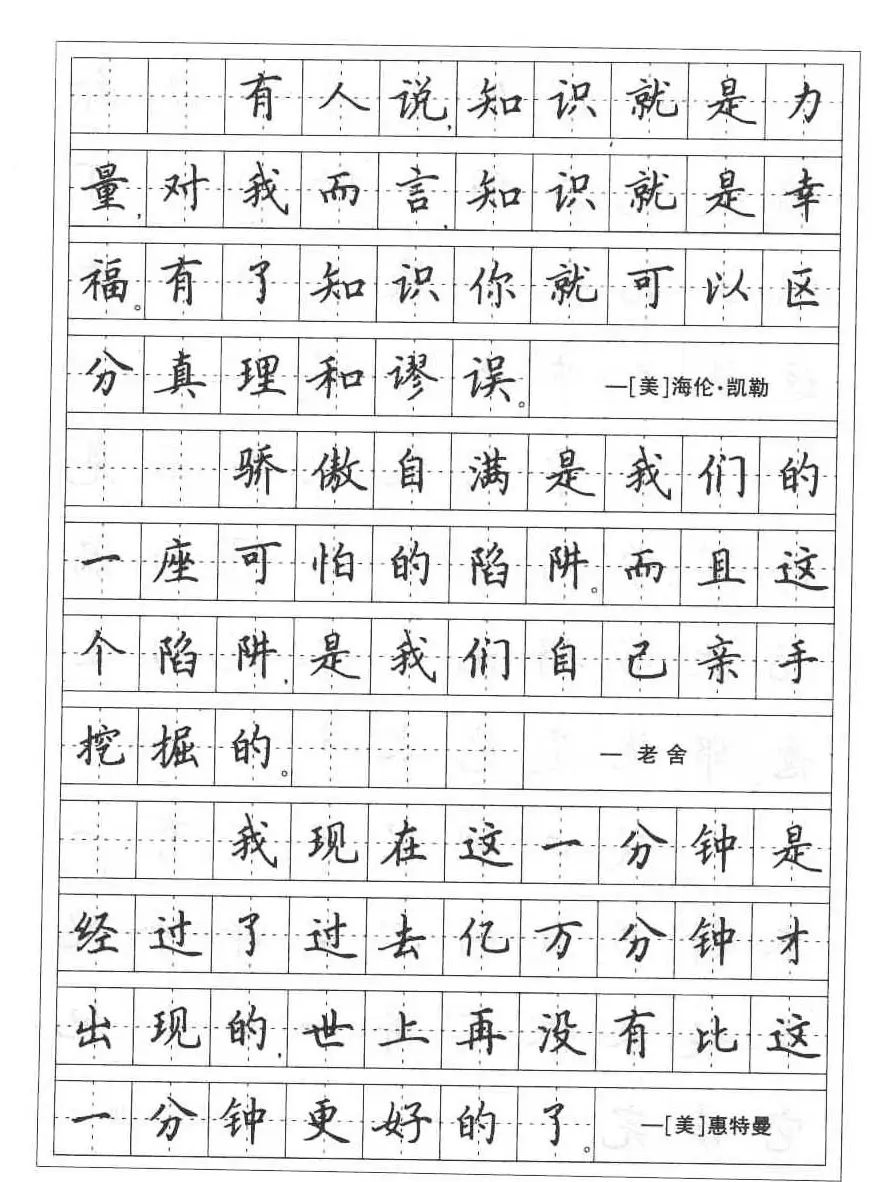 有人说,知识就是力
量,对我而言,知识就是幸
福。有了知识你就可以区
分真理和谬误。 —[美]海伦·凯勒
骄傲自满是我们的
一座可怕的陷阱。而且这
个陷阱,是我们自己亲手
挖掘的。 — 老舍
我现在这一分钟是
经过了过去亿万分钟才
出现的,世上再没有比这
一分钟更好的了。 —[美]惠特曼